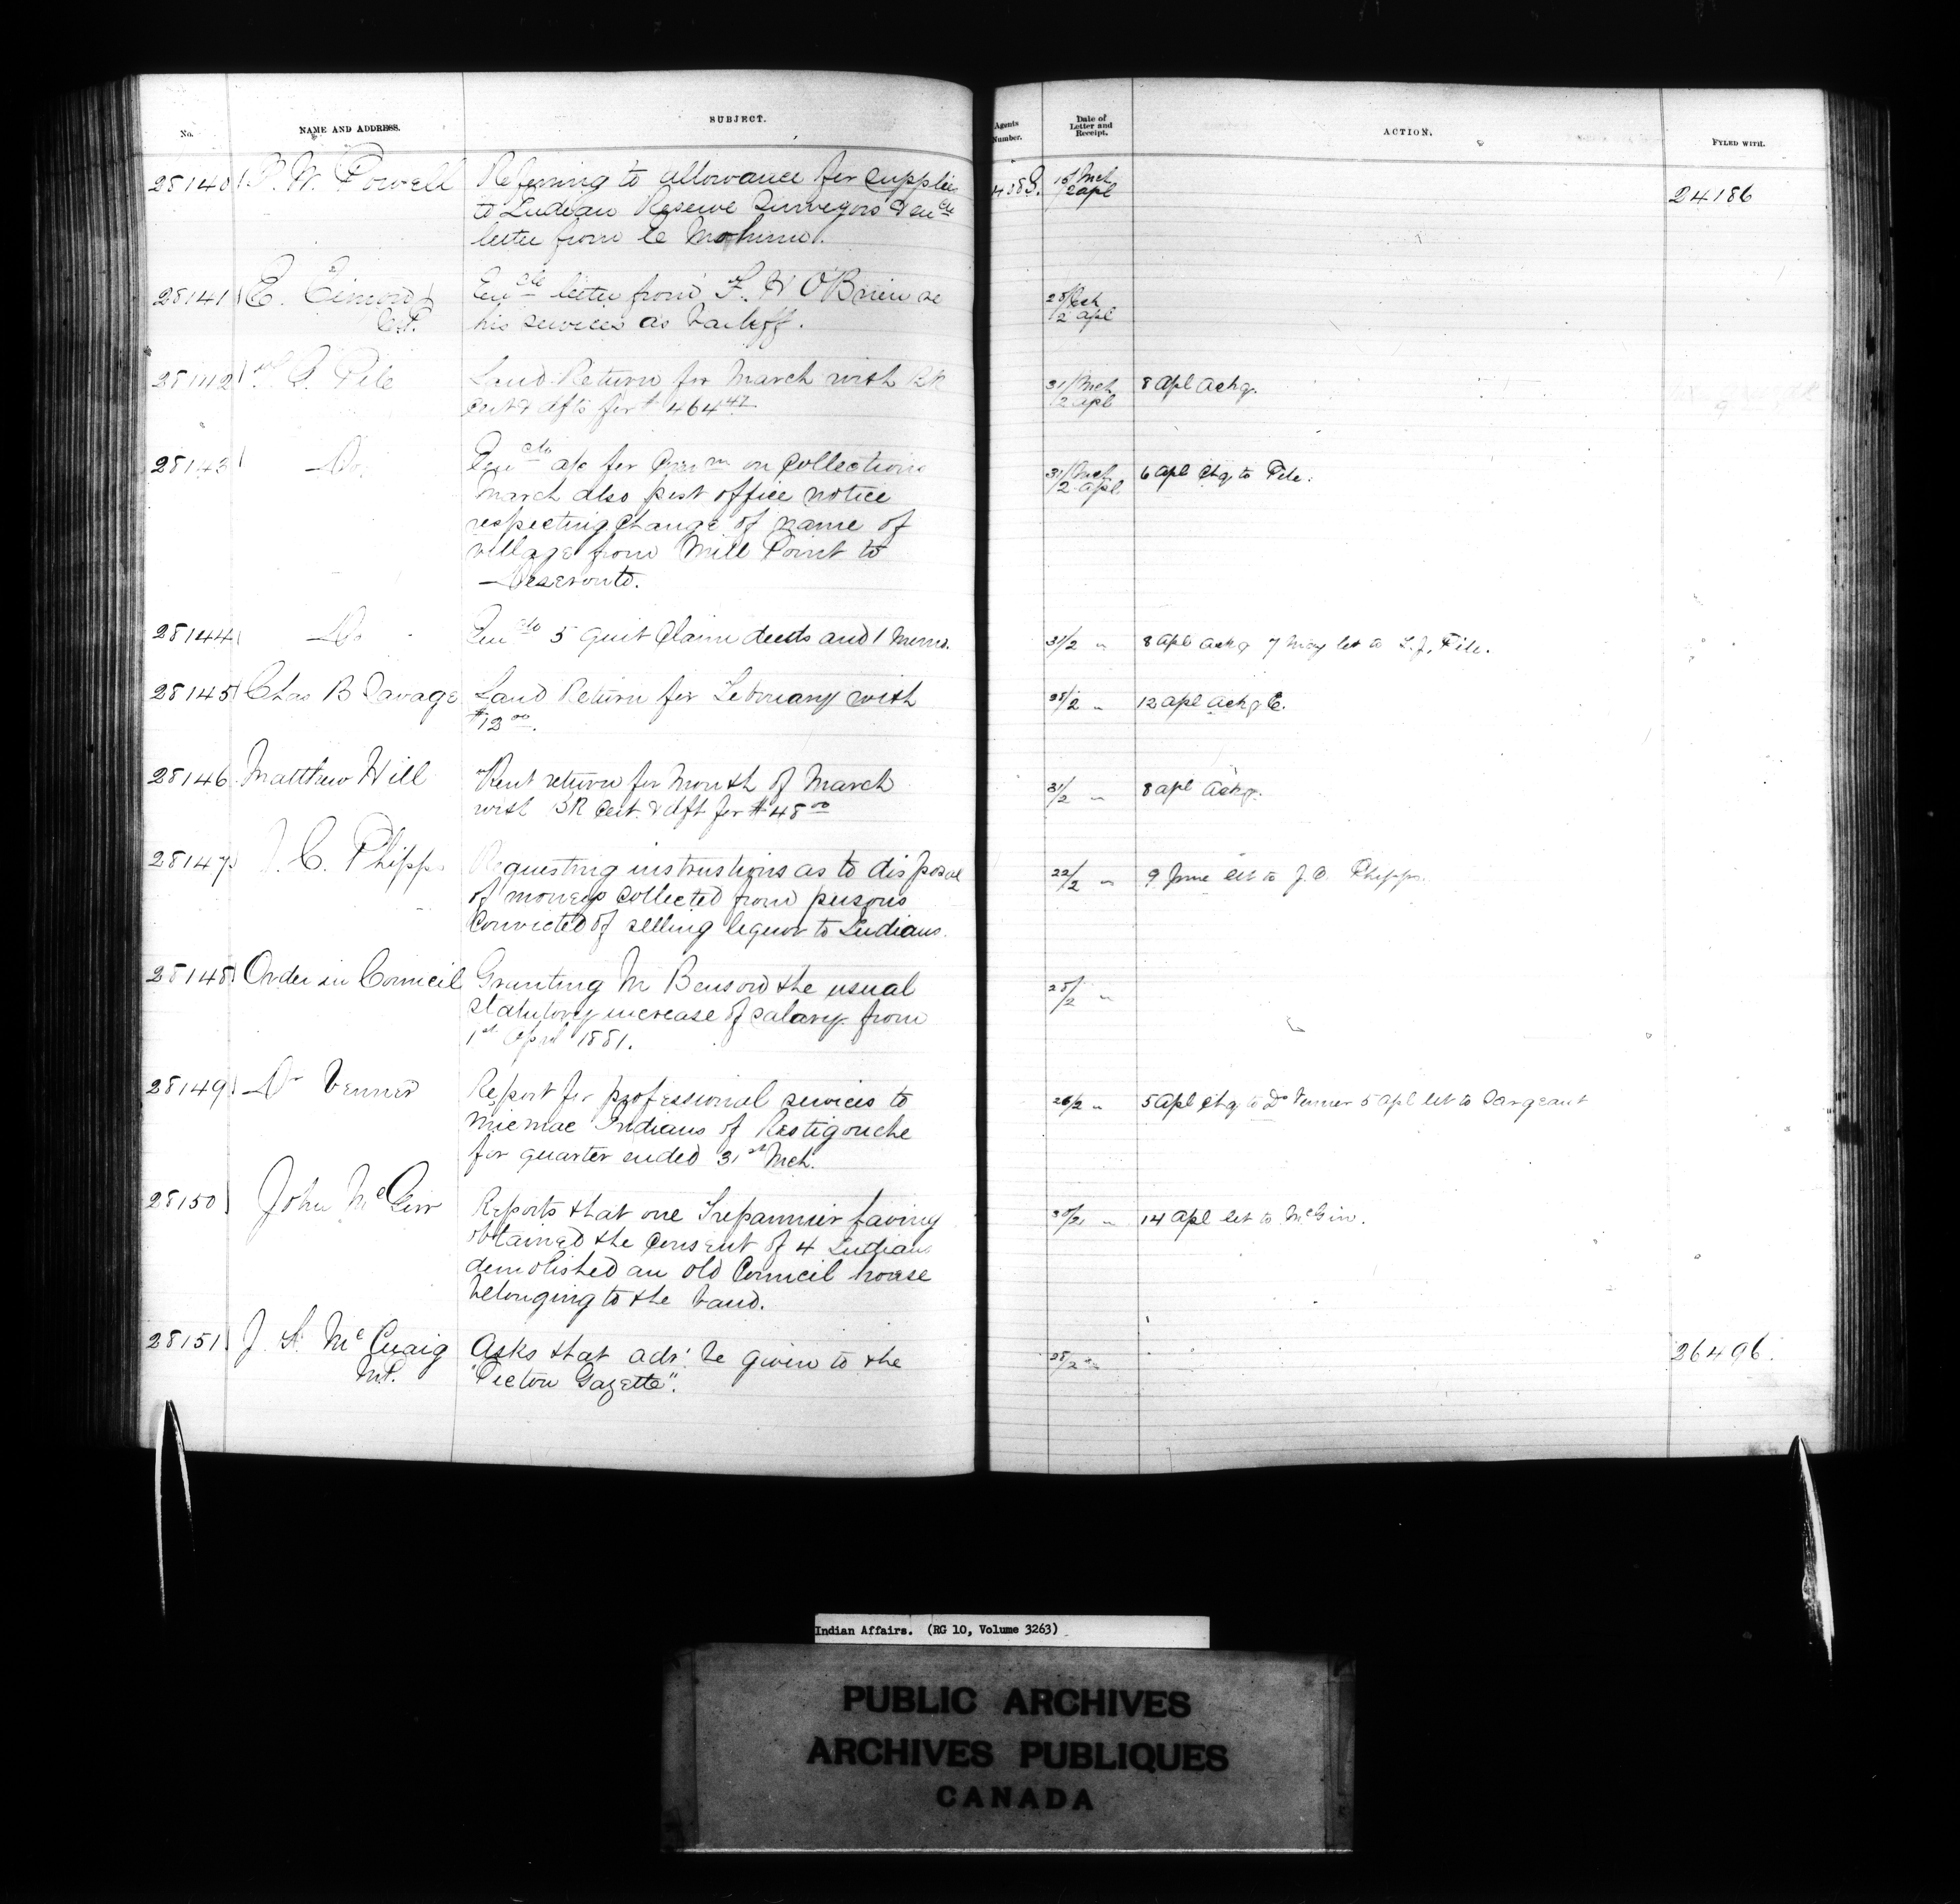 No. NAME AND ADDRESS. SUBJECT. Agents Number. Date of Letter and Receipt. ACTION. FYLED WITH.
28140 Powell Referring to allowance for supplies 15 Mch 24186
to Indian Reserve Surveyors & encle 2 apl
letter from
28141 E. Encle letter from F. H O'Brien re
his services as Bailiff. 2 apl
28142 Pile Land Return for March with BR 31/Mch 8 apl Ackg.
Cert & dfts for $464 47 2 apl
28143 Do. Encle a/c for Comm on Collections 31/Mch 6 apl Chq to Pile.
March also post office notice 2 apl
respecting Change of name of
village from Mill Point to
Deseronto.
28144 Do Encle 5 quit Claim deeds and 1 Memo. 31/2 " 8 apl ackg 7 May let to
28145 Chas B Savage Land Return for February with 28/2 " 12 apl ackg E.
$12 00.
28146 Matthew Hill Rent return for Month of March 31/2 " 8 apl Ackg.
with BR Cert. & dft for $48 00
28147 J. C. Phipps Requesting instructions as to disposal 22/2 " 9 June let to J. C. Phipps.
of moneys collected from persons
Convicted of selling liquor to Indians.
28148 Order in Council Granting M Benson the usual 28/2 "
Statutory increase of salary from
1st April 1881.
28149 Dr Venner Report for professional services to 26/2 " 5 Apl Chq to Dr Venner 5 apl let to Sargeant
Micmac Indians of Restigouche
for quarter ended 31st Mch.
28150 John McGirr Reports that one Trepannier having 14 apl let to McGirr.
obtained the Consent of 4 Indians
demolished an old Council house
belonging to the band.
28151 J. S. McCuaig Asks that adv. be given to the 28/2 26496.
M.P. "Picton Gazette".
Indian Affairs. (RG 10, Volume 3263)
PUBLIC ARCHIVES
ARCHIVES PUBLIQUES
CANADA